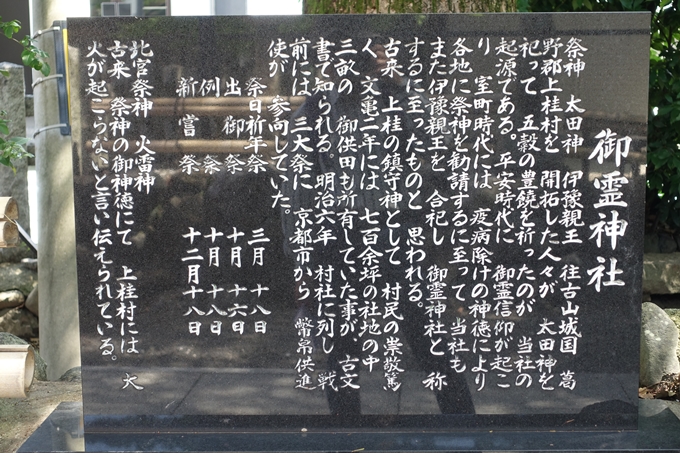 御霊神社
祭神 太田神 伊豫親王 往古山城国 葛
野郡上桂村を 開拓した人々が 太田神を
祀って 五穀の豊饒を祈ったのが 当社の
起源である。平安時代に 御霊信仰が起こ
り 室町時代には 疫病除けの神徳により
各地に祭神を勧請するに至って 当社も
また伊豫親王を 合祀し 御霊神社と 称
するに至ったものと 思われる。
古来 上桂の鎮守神として 村民の崇敬篤
く 文亀二年には 七百余坪の社地の中
三畝の 御供田も所有していた事が、古文
書で知られる。明治六年 村社に列し 戦
前には 三大祭に 京都市から 幣帛供進
使が 参向していた。
祭日祈年祭 三月 十八日
出御祭 十月 十六日
例祭 十月 十八日
新嘗祭 十二月十八日
北宮祭神 火雷神
古来 祭神の御神徳にて 上桂村には 大
火が起こらないと言い伝えられている。